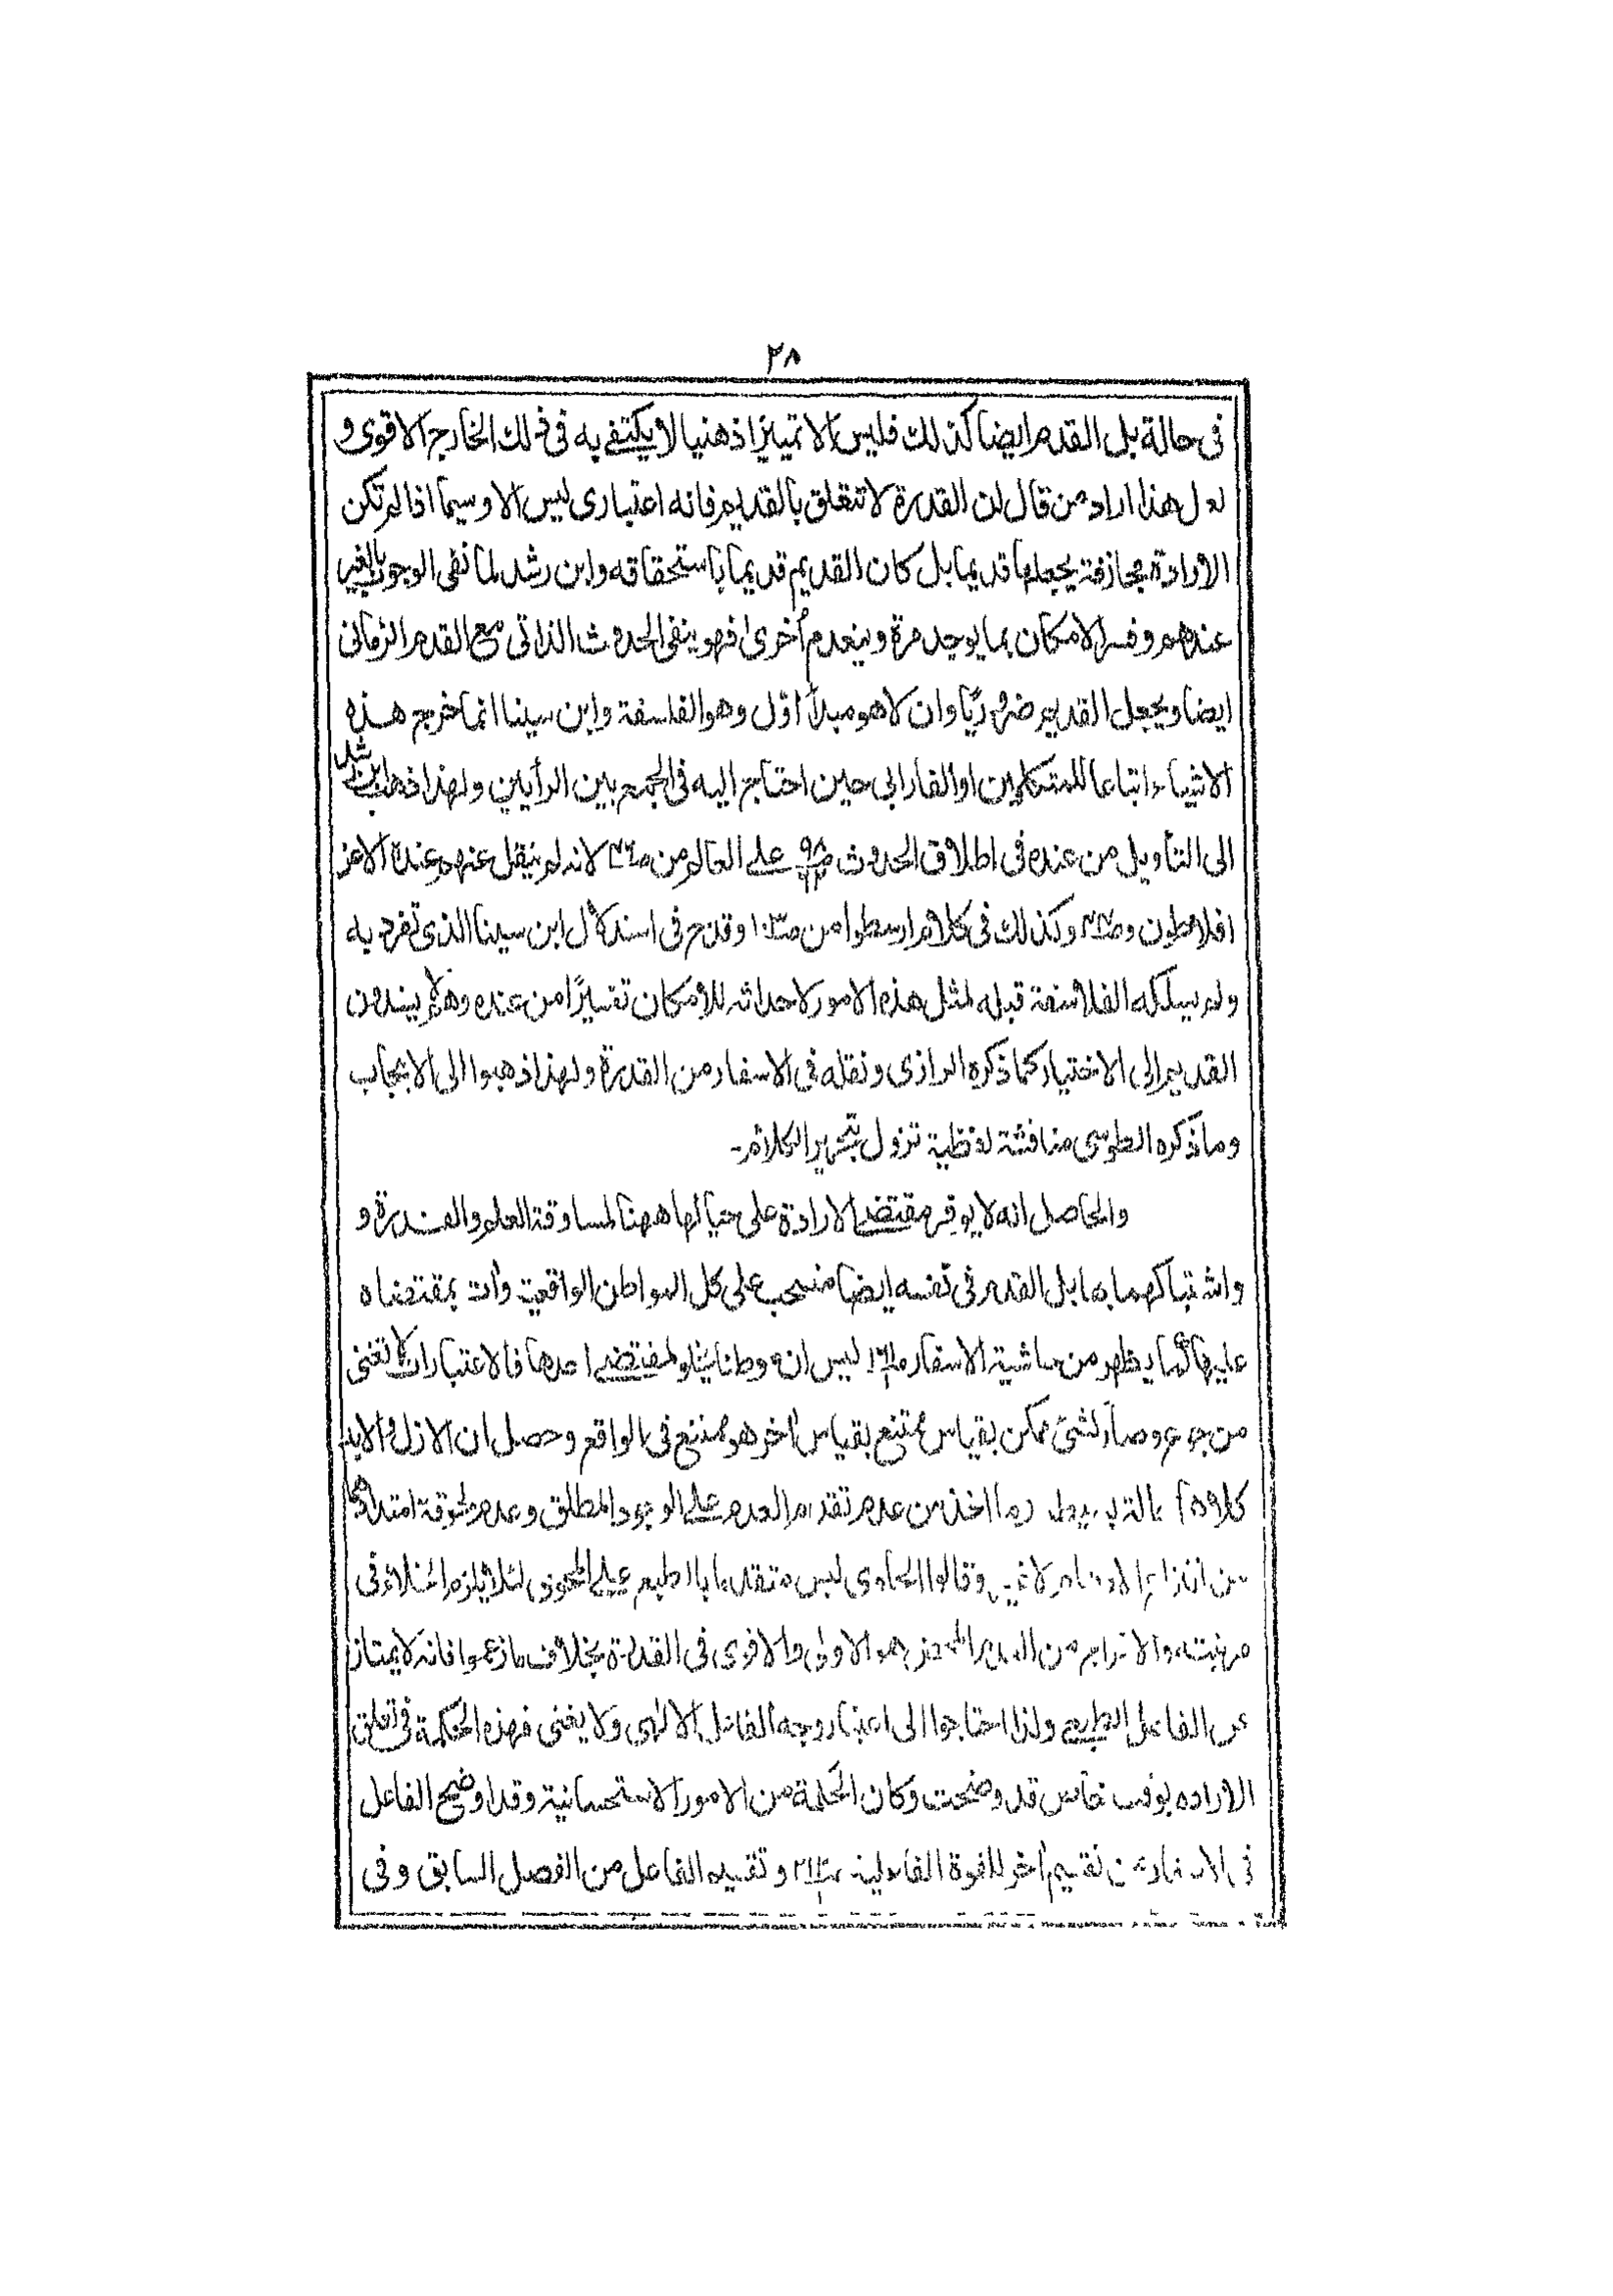 ٢٨
فى حالة بل القدم ايضا كذلك فليس الا تميزا ذهنيا لا يكتفے به فى ذلك الخارج الاقوى و
لعل هذا اراد من قال ان القدرة لا تتعلق بالقديم فانه اعتبارى ليس الا وسيما اذا لم تكن
الارادة مجازفة يجعلها قديما بل كان القديم قديما باستحقاقه وابن رشد لما نفى الوجوب بالغير
عندهم وفسر الامكان بما يوجد مرة وينعدم أخرى فهو ينفى الحدوث الذاتى مع القدم الزمانى
ايضا ويجعل القديم ضروريًا وان لا هو مبدأ اوّل وهو الفلسفة وابن سينا انما خرج هذه
الاشياء اتباعا للمتكلمين او الفارابى حين احتاج اليه فى الجمع بين الرأيين ولهذا ذهب ابن رشد
الى التأويل من عنده فى اطلاق الحدوث علے العالم من لانه لم ينقل عنهم وعنده الا عن
افلاطون و وكذلك فى كلام ارسطوا من وقدح فى استدلال ابن سينا الذى تفرد به
ولم يسلكه الفلاسفة قبله لمثل هذه الامور لاحداثه للامكان تفسيرًا من عنده وهؤلاء يسندون
القديم الى الاختيار كما ذكره الرازى ونقله فى الاسفار من القدرة ولهذا ذهبوا الى الايجاب
وما ذكره الطوسى مناقشة لفظية تزول بتحرير الكلام۔
والحاصل انه لا يوفر مقتضے الارادة على حيالها ههنا لمساوقة العلم والقدرة و
واشتباكهما بها بل القدم فى نفسه ايضا منسحب على كل المواطن الواقعية وأت بمقتضاه
عليها كما يظهر من حاشية الاسفار ليس انه وطنا يتلو لمقتضے احدها فالاعتبارات لا تغنى
من جوع وصار لشئ ممكن بقياس ممتنع بقياس أخر هو ممتنع فى الواقع وحصل ان الازل والابد
كلاهما اخذ من عدم تقدم العدم علے الوجود المطلق وعدم لحوقه
من لا غير وقالوا الحاوى ليس متقدما بالطبع علے المحوى لئلا يلزم الخلاء فى
مرتبته من هو الاولى والاقوى فى القدرة بخلاف ما زعموا فانه لا يمتاز
عن الفاعل الطبعے ولذا احتاجوا الى اعتبار وجه الفاعل الالهى ولا يغنى فهذه الحكمة فى تعلق
الارادة بوقت خاص قد وضحت وكان الحكمة من الامور الاستحسانية وقد اوضح الفاعل
فى الاسفار من تقسيم أخر للقوة الفاعلية وتقسيم الفاعل من الفصل السابق وفى